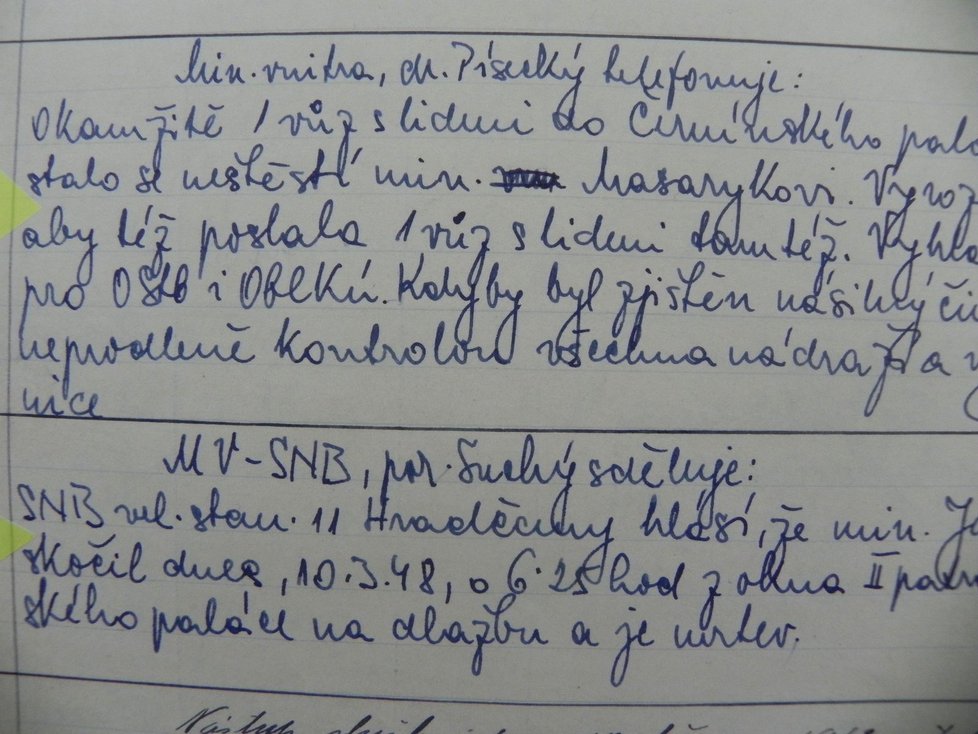 Min. vnitra, dr. Písecký telefonuje:
Okamžitě 1 vůz s lidmi do Černínského palá
stalo se neštěstí min. Masarykovi. Vyroz
aby též poslala 1 vůz s lidmi tamtéž. Vyhla
pro OStb i OBLKÚ. Kdyby byl zjištěn násilný či
neprodleně kontrolou všechna nádraží a
nice
MV-SNB, por. Suchý sděluje:
SNB vel. stan. 11 Hradčany hlásí, že min. J
skočil dnes, 10.3.48, o 6.25 hod z okna II patr
ského paláce na dlažbu a je mrtev.